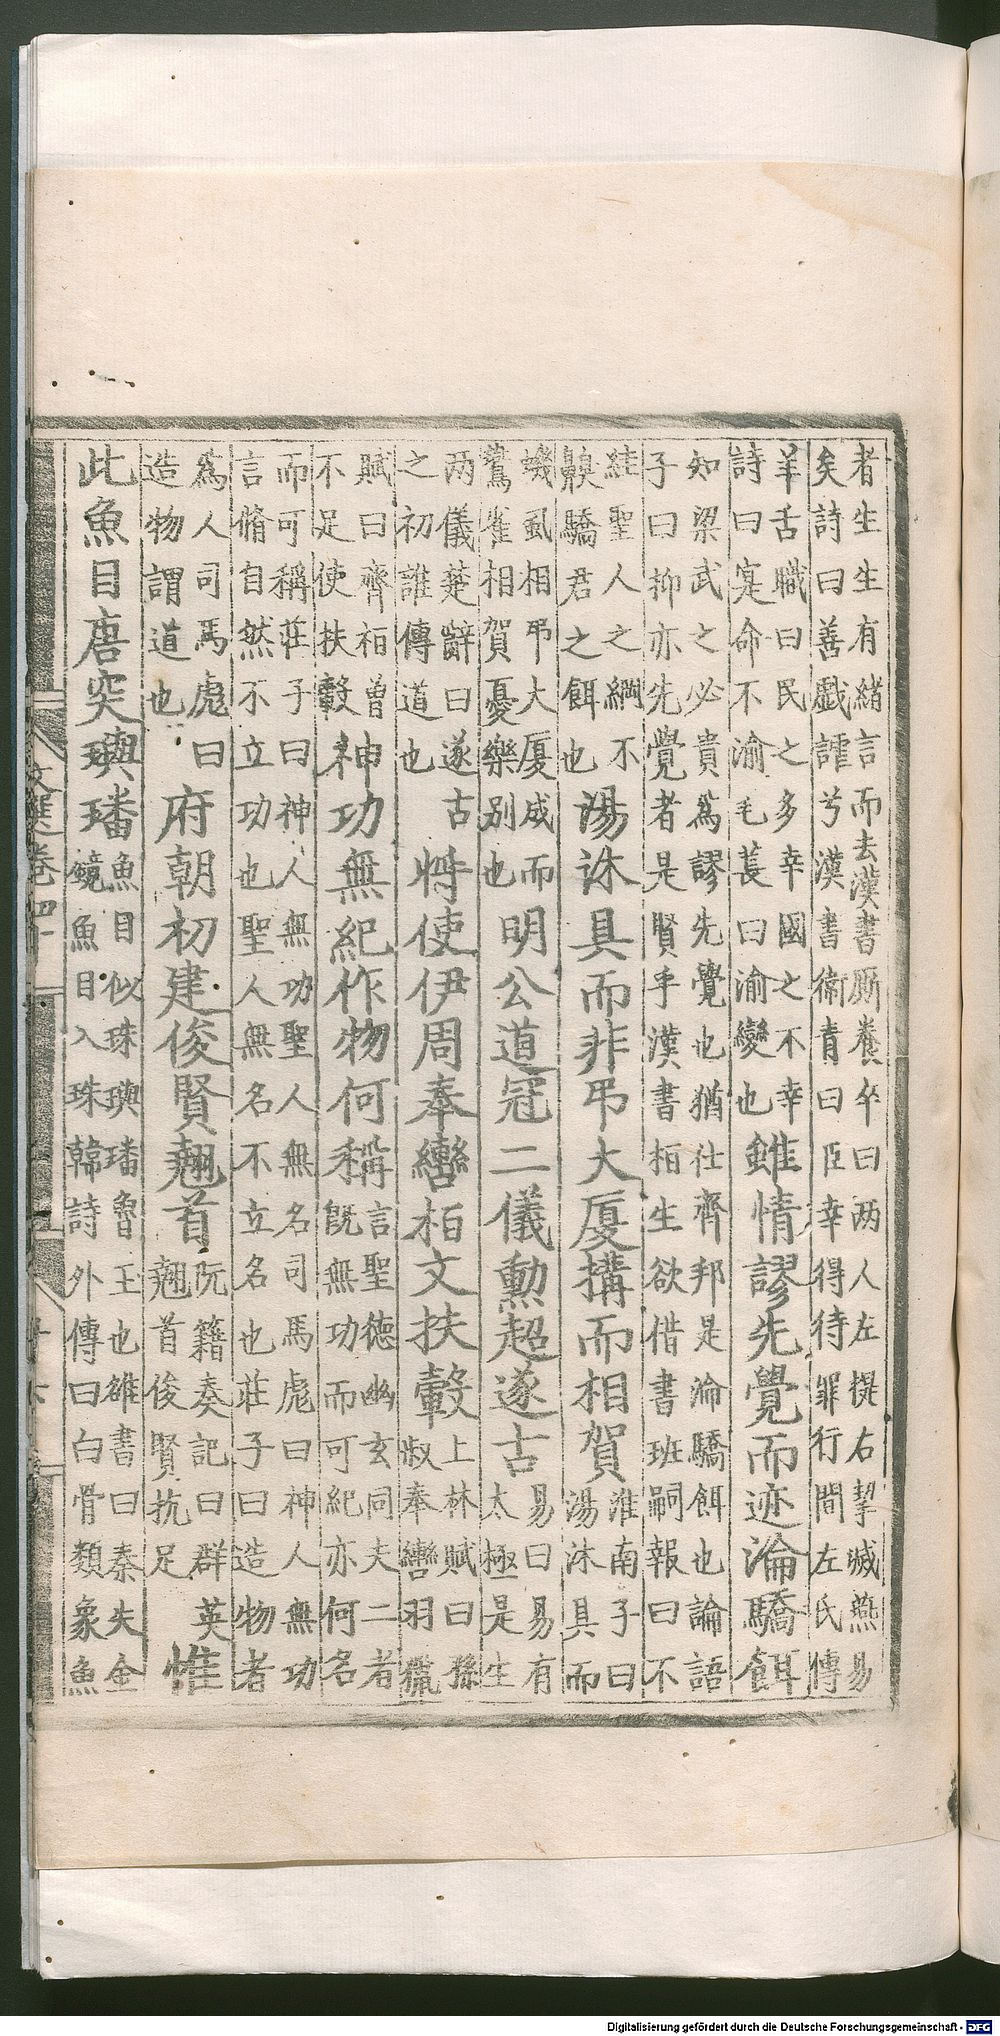 者生生有緒言而去漢書厮養卒曰两人左提右挈滅燕易
矣詩曰善戲謔兮漢書衞青曰臣幸得待罪行間左氏傳
羊舌職曰民之多幸國之不幸
詩曰寔命不渝毛萇曰渝變也
雖情謬先覺而迹淪驕餌
知梁武之必貴爲謬先覺也猶仕齊邦是淪驕餌也論語
子曰抑亦先覺者是賢乎漢書桓生欲借書班嗣報曰不
絓聖人之網不
齅驕君之餌也
湯沐具而非弔大厦搆而相賀
淮南子曰
湯沐具而
蟣虱相弔大厦成而
鷰雀相賀憂樂别也
明公道冠二儀勳超遂古
易曰易有
太極是生
两儀楚辭曰遂古
之初誰傳道也
將使伊周奉轡桓文扶轂
上林賦曰孫
叔奉轡羽獵
賦曰齊桓曾
不足使扶轂
神功無紀作物何稱
言聖德幽玄同夫二者
既無功而可紀亦何名
而可稱莊子曰神人無功聖人無名司馬彪曰神人無功
言脩自然不立功也聖人無名不立名也莊子曰造物者
爲人司馬彪曰
造物謂道也
府朝初建俊賢翹首
阮籍奏記曰群英
翹首俊賢抗足
惟
此魚目唐突璵璠
魚目似珠璵璠魯玉也雒書曰秦失金
鏡魚目入珠韓詩外傳曰白骨類象魚
文選卷四十
Digitalisierung gefördert durch die Deutsche Forschungsgemeinschaft - DFG